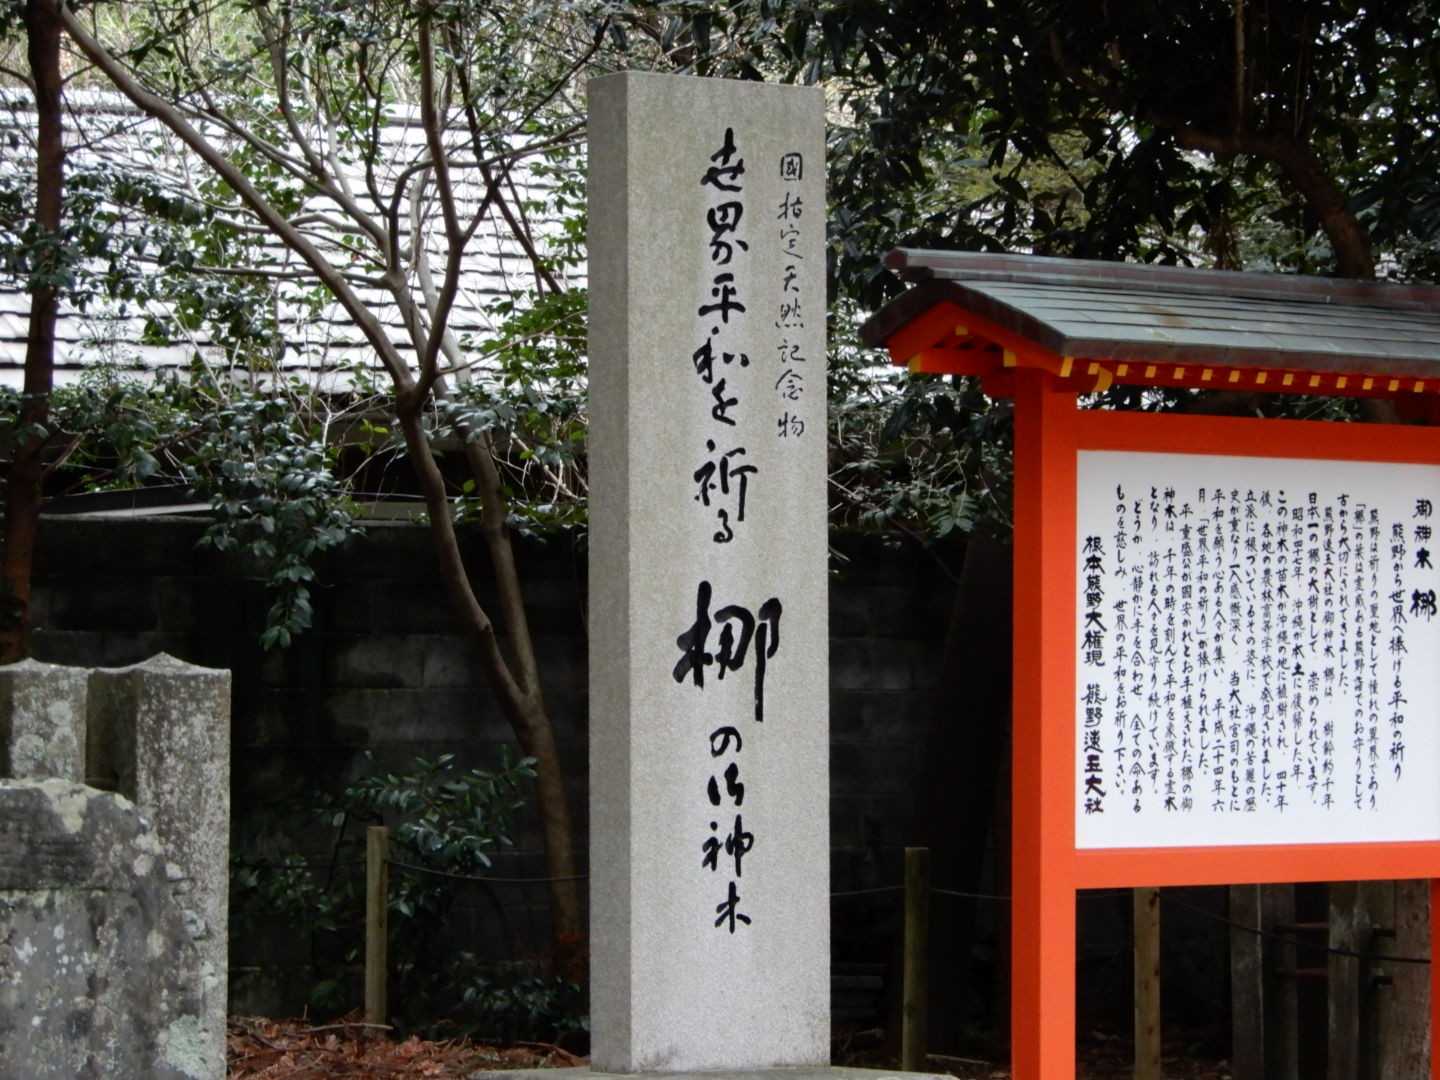 國指定天然記念物
世界平和を祈る 梛の御神木
御神木 梛
熊野から世界へ捧げる平和の祈り
熊野は祈りの聖地として憧れの聖界であり、
「梛」の葉は霊威ある熊野詣でのお守りとして
古から大切にされてきました。
熊野速玉大社の御神木 梛は、樹齢約千年
日本一の梛の大樹として、崇められています。
昭和四十七年、沖縄が本土に復帰した年、
この神木の苗木が沖縄の地に植樹され、四十年
後、各地の農林高等学校で発見されました。
立派に根づいているその姿に、沖縄の苦難の歴
史が重なり一入感慨深く、当大社宮司のもとに
平和を願う心ある人々が集い、平成二十四年六
月、「世界平和の祈り」が捧げられました。
平重盛公が国安かれとお手植えされた梛の御
神木は、千年の時を刻んで平和を象徴する霊木
となり、訪れる人々を見守り続けています。
どうか、心静かに手を合わせ、全ての命ある
ものを慈しみ、世界の平和をお祈り下さい。
根本熊野大権現 熊野速玉大社